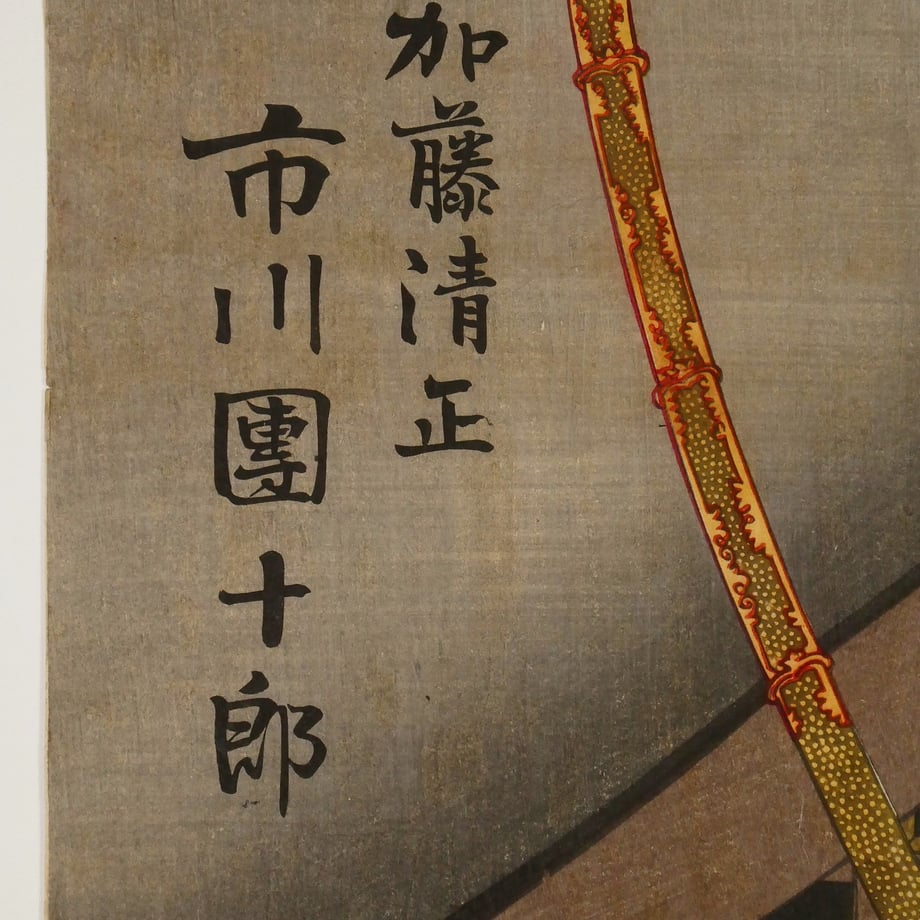 加藤清正
市川團十郎